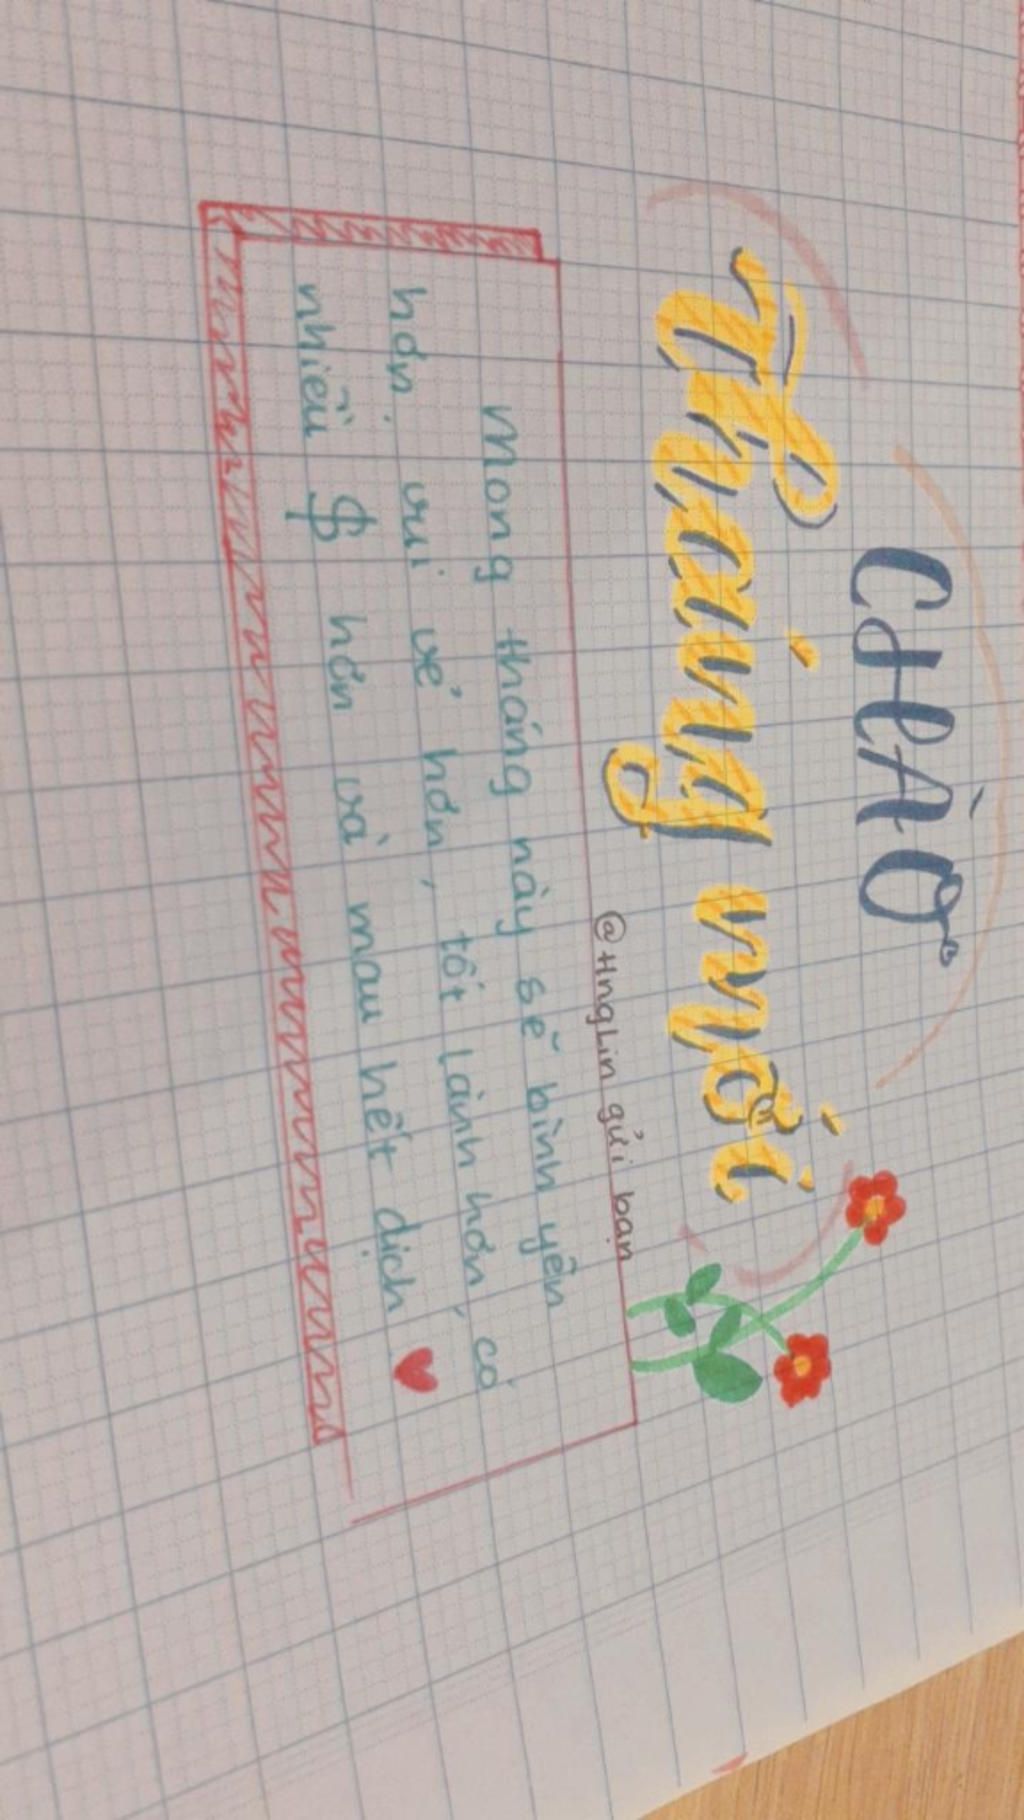 CHÀO
Tháng mới
@HngLin gửi bạn
Mong tháng này sẽ bình yên
hơn, vui vẻ hơn, tốt lành hơn, có
nhiều $ hơn và mau hết dịch ♥